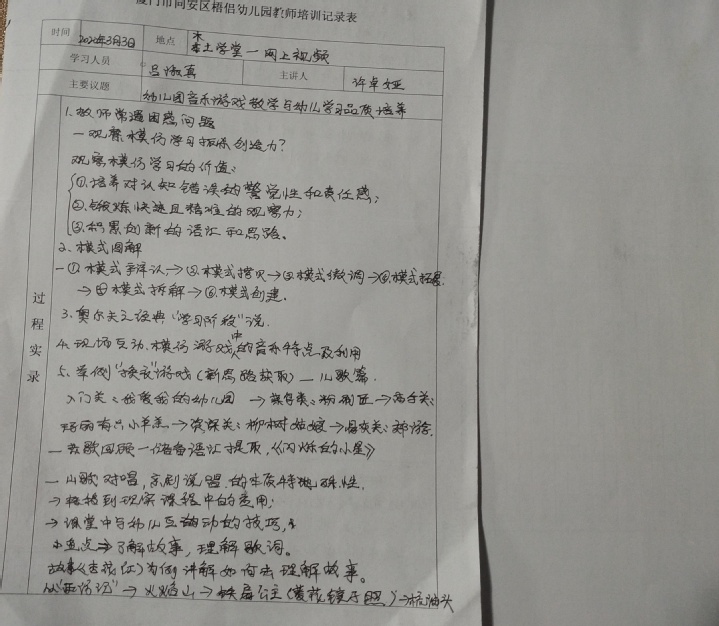 厦门市同安区梧侣幼儿园教师培训记录表
时间 2022年3月3日 地点 本土学堂一网上视频
学习人员 吕淑真 主讲人 许卓娅
主要议题 幼儿园音乐游戏教学与幼儿学习品质培养
过程实录
1、教师常遇困惑问题
一观察模仿学习扼杀创造力?
观察模仿学习的价值:
①培养对认知错误的警觉性和责任感;
②锻炼快速且精准的观察力;
③积累创新的语汇和思路。
2、模式图解
一①模式辨认→②模式拷贝→③模式微调→④模式拓展
→⑤模式拆解→⑥模式创建.
3、奥尔夫之经典"学习阶段"说.
4、现场互动.模仿游戏中的音乐特点及利用
5、举例"换衣"游戏(新思路获取)一儿歌篇.
入门关:我爱我的幼儿园
一老歌回顾一储备语汇提取,《闪烁的小星》
一山歌对唱,京剧说唱.的性质特
→转移到现实课程中的应用;
→课堂中与幼儿互动的技巧,
重点→了解故事,理解歌词。
故事《杏花红》为例讲解如何去理解故事。
从"西游记"→火焰山→铁扇公主